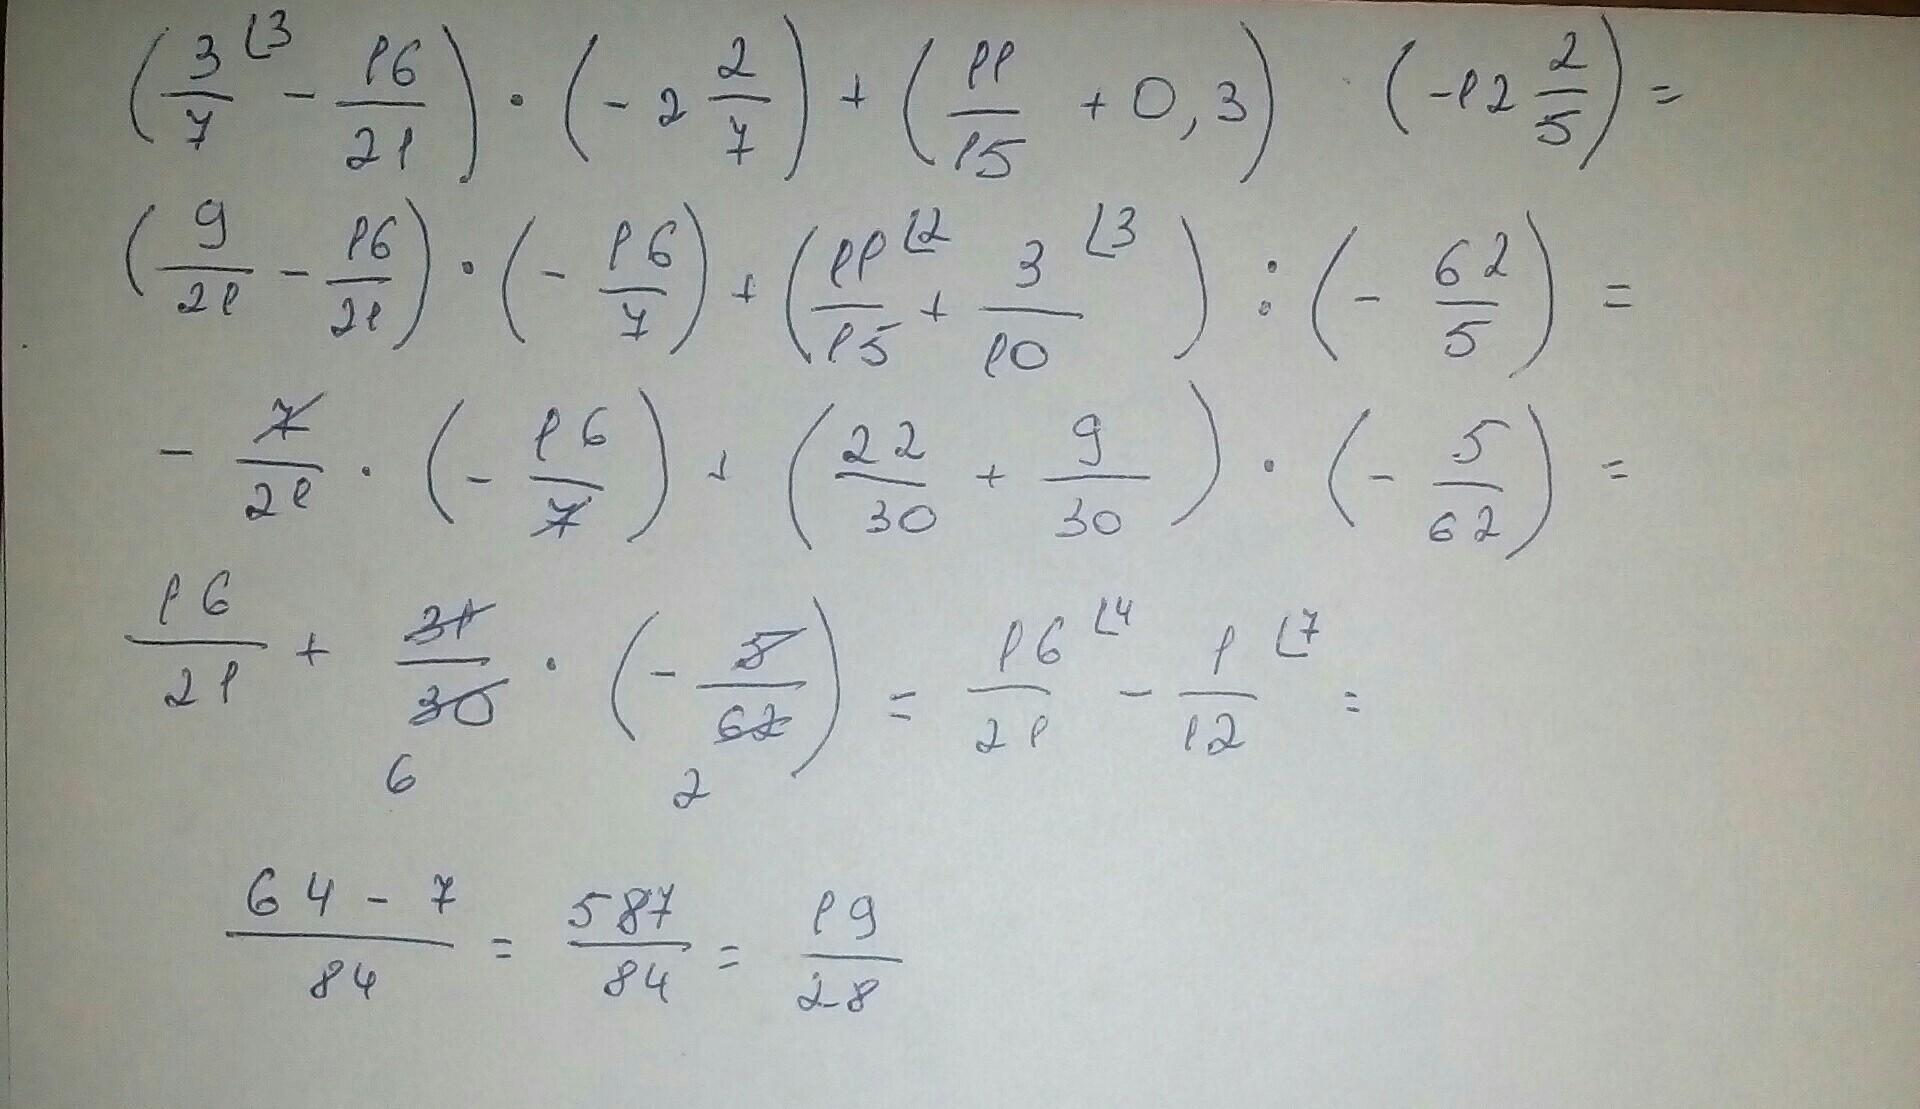 (3/7 ⌊3 - 16/21) · (-2 2/7) + (11/15 + 0,3) · (-12 2/5) =
(9/21 - 16/21) · (- 16/7) + (11/15 ⌊2 + 3/10 ⌊3) : (- 62/5) =
- 7/21 · (- 16/7) + (22/30 + 9/30) · (- 5/62) =
16/21 + 31/30 · (- 5/62) = 16/21 ⌊4 - 1/12 ⌊7 =
6 2
64 - 7/84 = 587/84 = 19/28